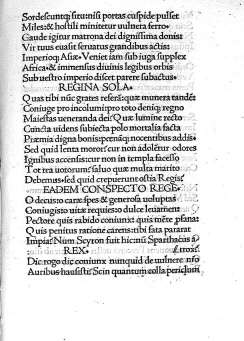 Sordescuntq; situniis portas cuspide pulset
Miles: & hostili minitetur uulnera ferro
Gaude igitur matrona dei dignissima donis
Vir tuus euasit seruatus grandibus actis:
Imperioq; Asiæ. Veniet iam sub iuga supplex
Africa & immensus diuinis legibus orbis
Sub uestro imperio discet parere subactus.
REGINA SOLA.
Quas tibi nūc grates referā: quæ munera tandē
Coniuge pro incolumi pro toto deniq; regno
Maiestas ueneranda dei: Quæ lumine recto
Cuncta uidens subiecta polo mortalia facta
Præmia digna bonis: penāq; nocentibus addis
Sed quid lenta moror: cur non adolētur odores
Ignibus accensis: cur non in templa facesso
Tot tra uotorum: saluo quæ multa marito
Debemus: sed quid crepuerunt ostia Regis
EADEM CONSPECTO REGE.
O decus o caræ spes & generosa uoluptas
Coniugis o uitæ requies: o dulce leuamen
Pectore quis rabido coniunx quis mēte prophana:
Quis penitus ratione carens: tibi fata pararat
Impia: Num Scyron fuit hic: nū Sparthacus a
REX. trox.
Dic rogo dic coniunx nunquid de uulnere nro
Auribus hausisti: Scin quantum colla periclum